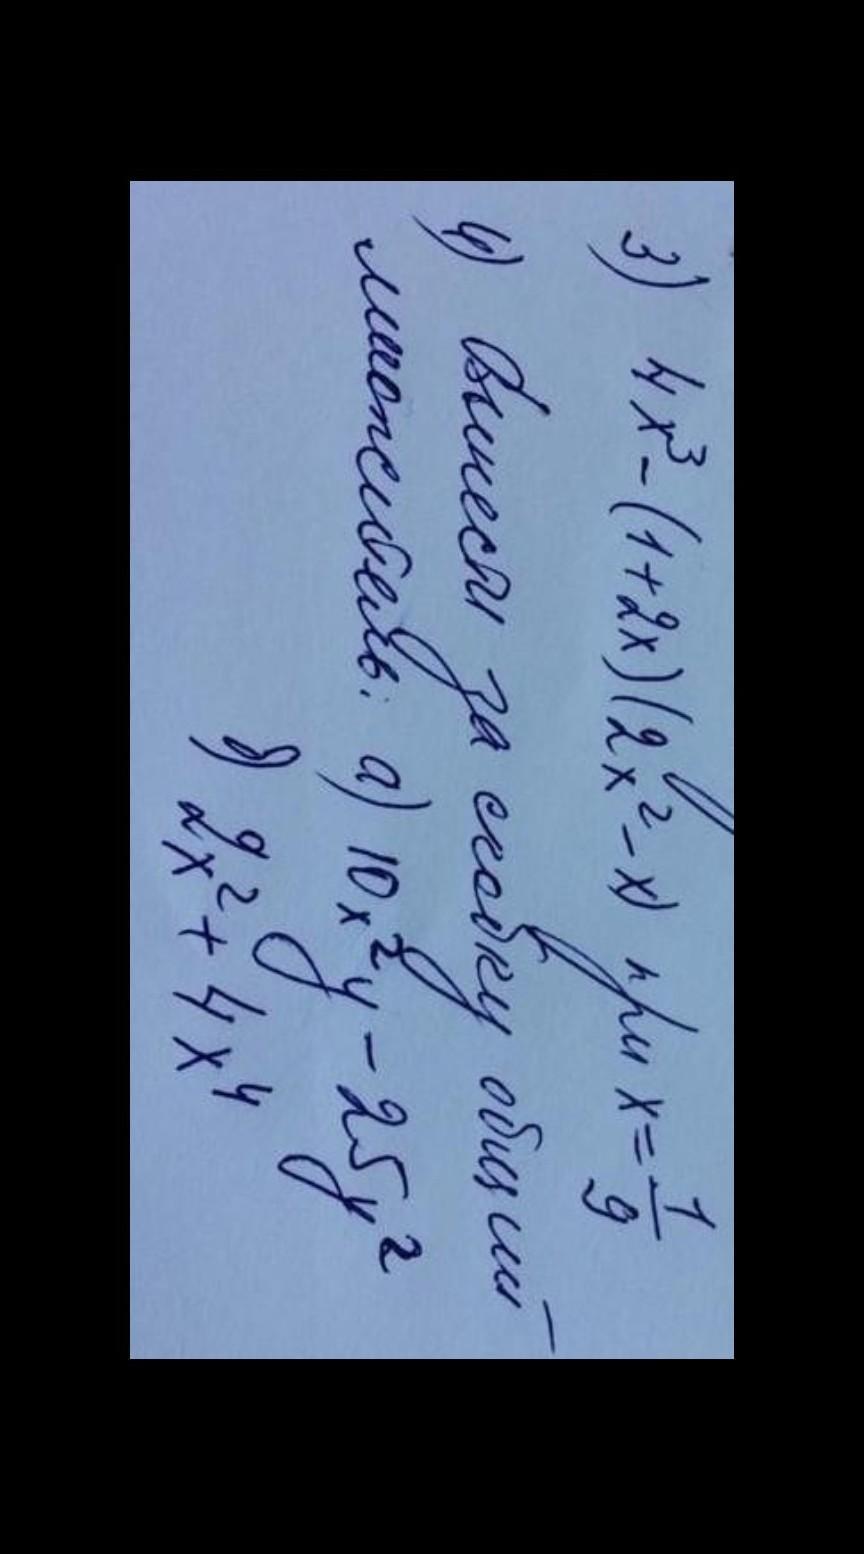 3) 4x³ - (1+2x)(2x² - x) при x = 1/9
4) Вынести за скобку общий
множитель: а) 10x²y - 25y²
в) 2x² + 4x⁴